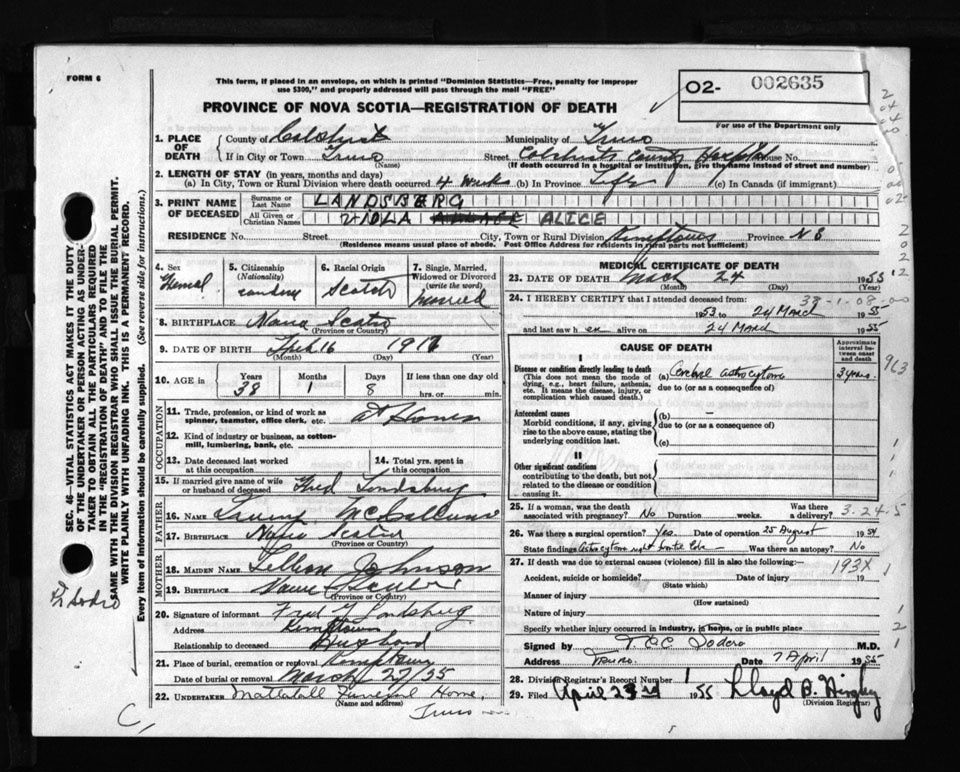 FORM 6
This form, if placed in an envelope, on which is printed "Dominion Statistics—Free, penalty for improper
use $300," and properly addressed will pass through the mail "FREE"
O2- 002635
PROVINCE OF NOVA SCOTIA—REGISTRATION OF DEATH
For use of the Department only
1. PLACE OF DEATH
County of Colchester Municipality of Truro
If in City or Town Truro Street Colchester County Hospital House No.
(Name) (If death occurred in a hospital or institution, give the name instead of street and number)
2. LENGTH OF STAY (in years, months and days)
(a) In City, Town or Rural Division where death occurred 4 weeks (b) in Province Life (c) in Canada (if immigrant)
3. PRINT NAME OF DECEASED
Surname or Last Name LANDSBERG
All Given or Christian Names VIOLA ALICE
RESIDENCE No. Street City, Town or Rural Division Kemptown Province N S
(Residence means usual place of abode. Post Office Address for residents in rural parts not sufficient)
4. Sex Femal
5. Citizenship (Nationality)
6. Racial Origin Scotch
7. Single, Married, Widowed or Divorced (write the word) married
8. BIRTHPLACE Nova Scotia
(Province or Country)
9. DATE OF BIRTH Feb 16
(Month) (Day) (Year)
10. AGE in Years 38 Months 1 Days 8 If less than one day old hrs. or min.
OCCUPATION
11. Trade, profession, or kind of work as spinner, teamster, office clerk, etc. at Home
12. Kind of industry or business, as cotton-mill, lumbering, bank, etc.
13. Date deceased last worked at this occupation
14. Total yrs. spent in this occupation
15. If married give name of wife or husband of deceased Fred
FATHER
16. NAME McCallum
17. BIRTHPLACE Nova Scotia
(Province or Country)
MOTHER
18. MAIDEN NAME Johnson
19. BIRTHPLACE Nova Scotia
(Province or Country)
20. Signature of informant Fred
Address Kemptown
Relationship to deceased Husband
21. Place of burial, cremation or removal Kemptown
Date of burial or removal March 27/55
22. UNDERTAKER Mattatall Funeral Home,
(Name and address)
Truro
C,
MEDICAL CERTIFICATE OF DEATH
23. DATE OF DEATH March 24 1955
(Month) (Day) (Year)
24. I HEREBY CERTIFY that I attended deceased from:
38-1-08-00
1953 to 24 March 1955
and last saw h er alive on 24 March 1955
CAUSE OF DEATH
Approximate interval between onset and death
I
Disease or condition directly leading to death
(This does not mean the mode of dying, e.g., heart failure, asthenia, etc. It means the disease, injury, or complication which caused death.)
(a) Cerebral astrocytoma 3 years.
due to (or as a consequence of)
963
Antecedent causes
Morbid conditions, if any, giving rise to the above cause, stating the underlying condition last.
(b) —
due to (or as a consequence of)
(c)
II
Other significant conditions
contributing to the death, but not related to the disease or condition causing it.
25. If a woman, was the death associated with pregnancy? No Duration weeks. Was there a delivery?
3-24-5
26. Was there a surgical operation? Yes. Date of operation 25 August 1954
State findings Astrocytoma right Was there an autopsy? No
27. If death was due to external causes (violence) fill in also the following:
193X
Accident, suicide or homicide? Date of injury 19
(State which)
Manner of injury
(How sustained)
Nature of injury
Specify whether injury occurred in industry, in home, or in public place
Signed by M.D.
Address Truro. Date 7 April 1955
28. Division Registrar's Record Number
29. Filed April 23rd 1955 Lloyd B.
(Division Registrar)
SEC. 46—VITAL STATISTICS ACT MAKES IT THE DUTY
OF THE UNDERTAKER OR PERSON ACTING AS UNDERTAKER
TO OBTAIN ALL THE PARTICULARS REQUIRED
IN THE "REGISTRATION OF DEATH" AND TO FILE THE
SAME WITH THE DIVISION REGISTRAR WHO SHALL ISSUE THE BURIAL PERMIT.
WRITE PLAINLY WITH UNFADING INK. THIS IS A PERMANENT RECORD.
Every item of information should be carefully supplied. (See reverse side for instructions.)